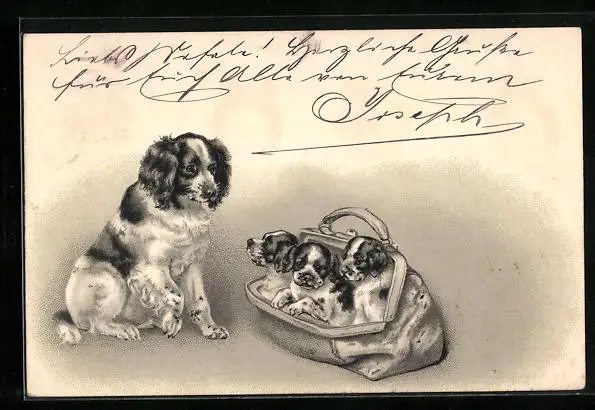 Liebste Stefele! Herzliche Grüße
für Euch Alle von Eurem
Joseph